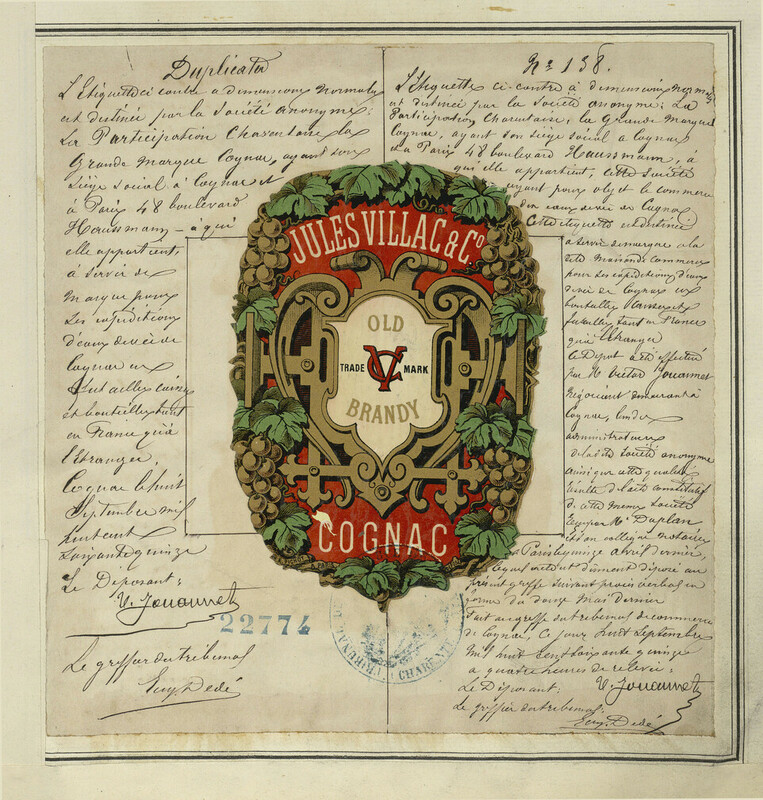 Duplicata
L'Etiquette ci contre a dimensions normales
est destinée par la Société anonyme:
La Participation Charentaise La
Grande Marque Cognac, ayant son
Siège social à Cognac et
à Paris 48 boulevard
Haussmann - a qui
elle appartient,
à servir de
marque pour
Les expéditions
d'eaux de vie de
Cognac en
futailles caisses
et bouteilles tant
en France qu'à
l'Etranger,
Cognac le huit
Septembre mil
huit cent
soixante quinze
Le Déposant:
V. Jouannet
22774
Le greffier du tribunal
Eug. Dedé
No 138.
L'Etiquette ci-contre à dimensions normales
est destinée par la Société anonyme: La
Participation Charentaise, la Grande Marque
Cognac, ayant son siège social a Cognac
et a Paris 48 boulevard Haussmann, à
qui elle appartient, cette Société
ayant pour objet le commerce
des eaux de vie de Cognac.
Cette étiquette est destinée
a servir de marque a la
dite maison de commerce
pour ses expéditions d'eaux
de vie de Cognac en
bouteilles, caisses et
futailles tant en France
qu'à l'Etranger
Le Dépot a été effectué
par M. Victor Jouannet
négociant demeurant à
Cognac, l'un des
administrateurs
de la dite Société anonyme
ainsi que cette qualité
résulte de l'acte constitutif
de cette même Société
reçu par Me Duplan,
et son collègue notaires
a Paris le quinze avril dernier,
lequel extrait dument déposé au
présent greffe suivant procès verbal en
forme du douze Mai dernier
Fait au greffe du tribunal de commerce
de Cognac, Ce jour huit Septembre
Mil huit Cent Soixante quinze
a quatre heures de relevée:
Le Déposant: V. Jouannet
Le greffier du tribunal:
Eug. Dedé
JULES VILLAC & Co
OLD
TRADE VC MARK
BRANDY
COGNAC
TRIBUNAL DE
CHARENTE